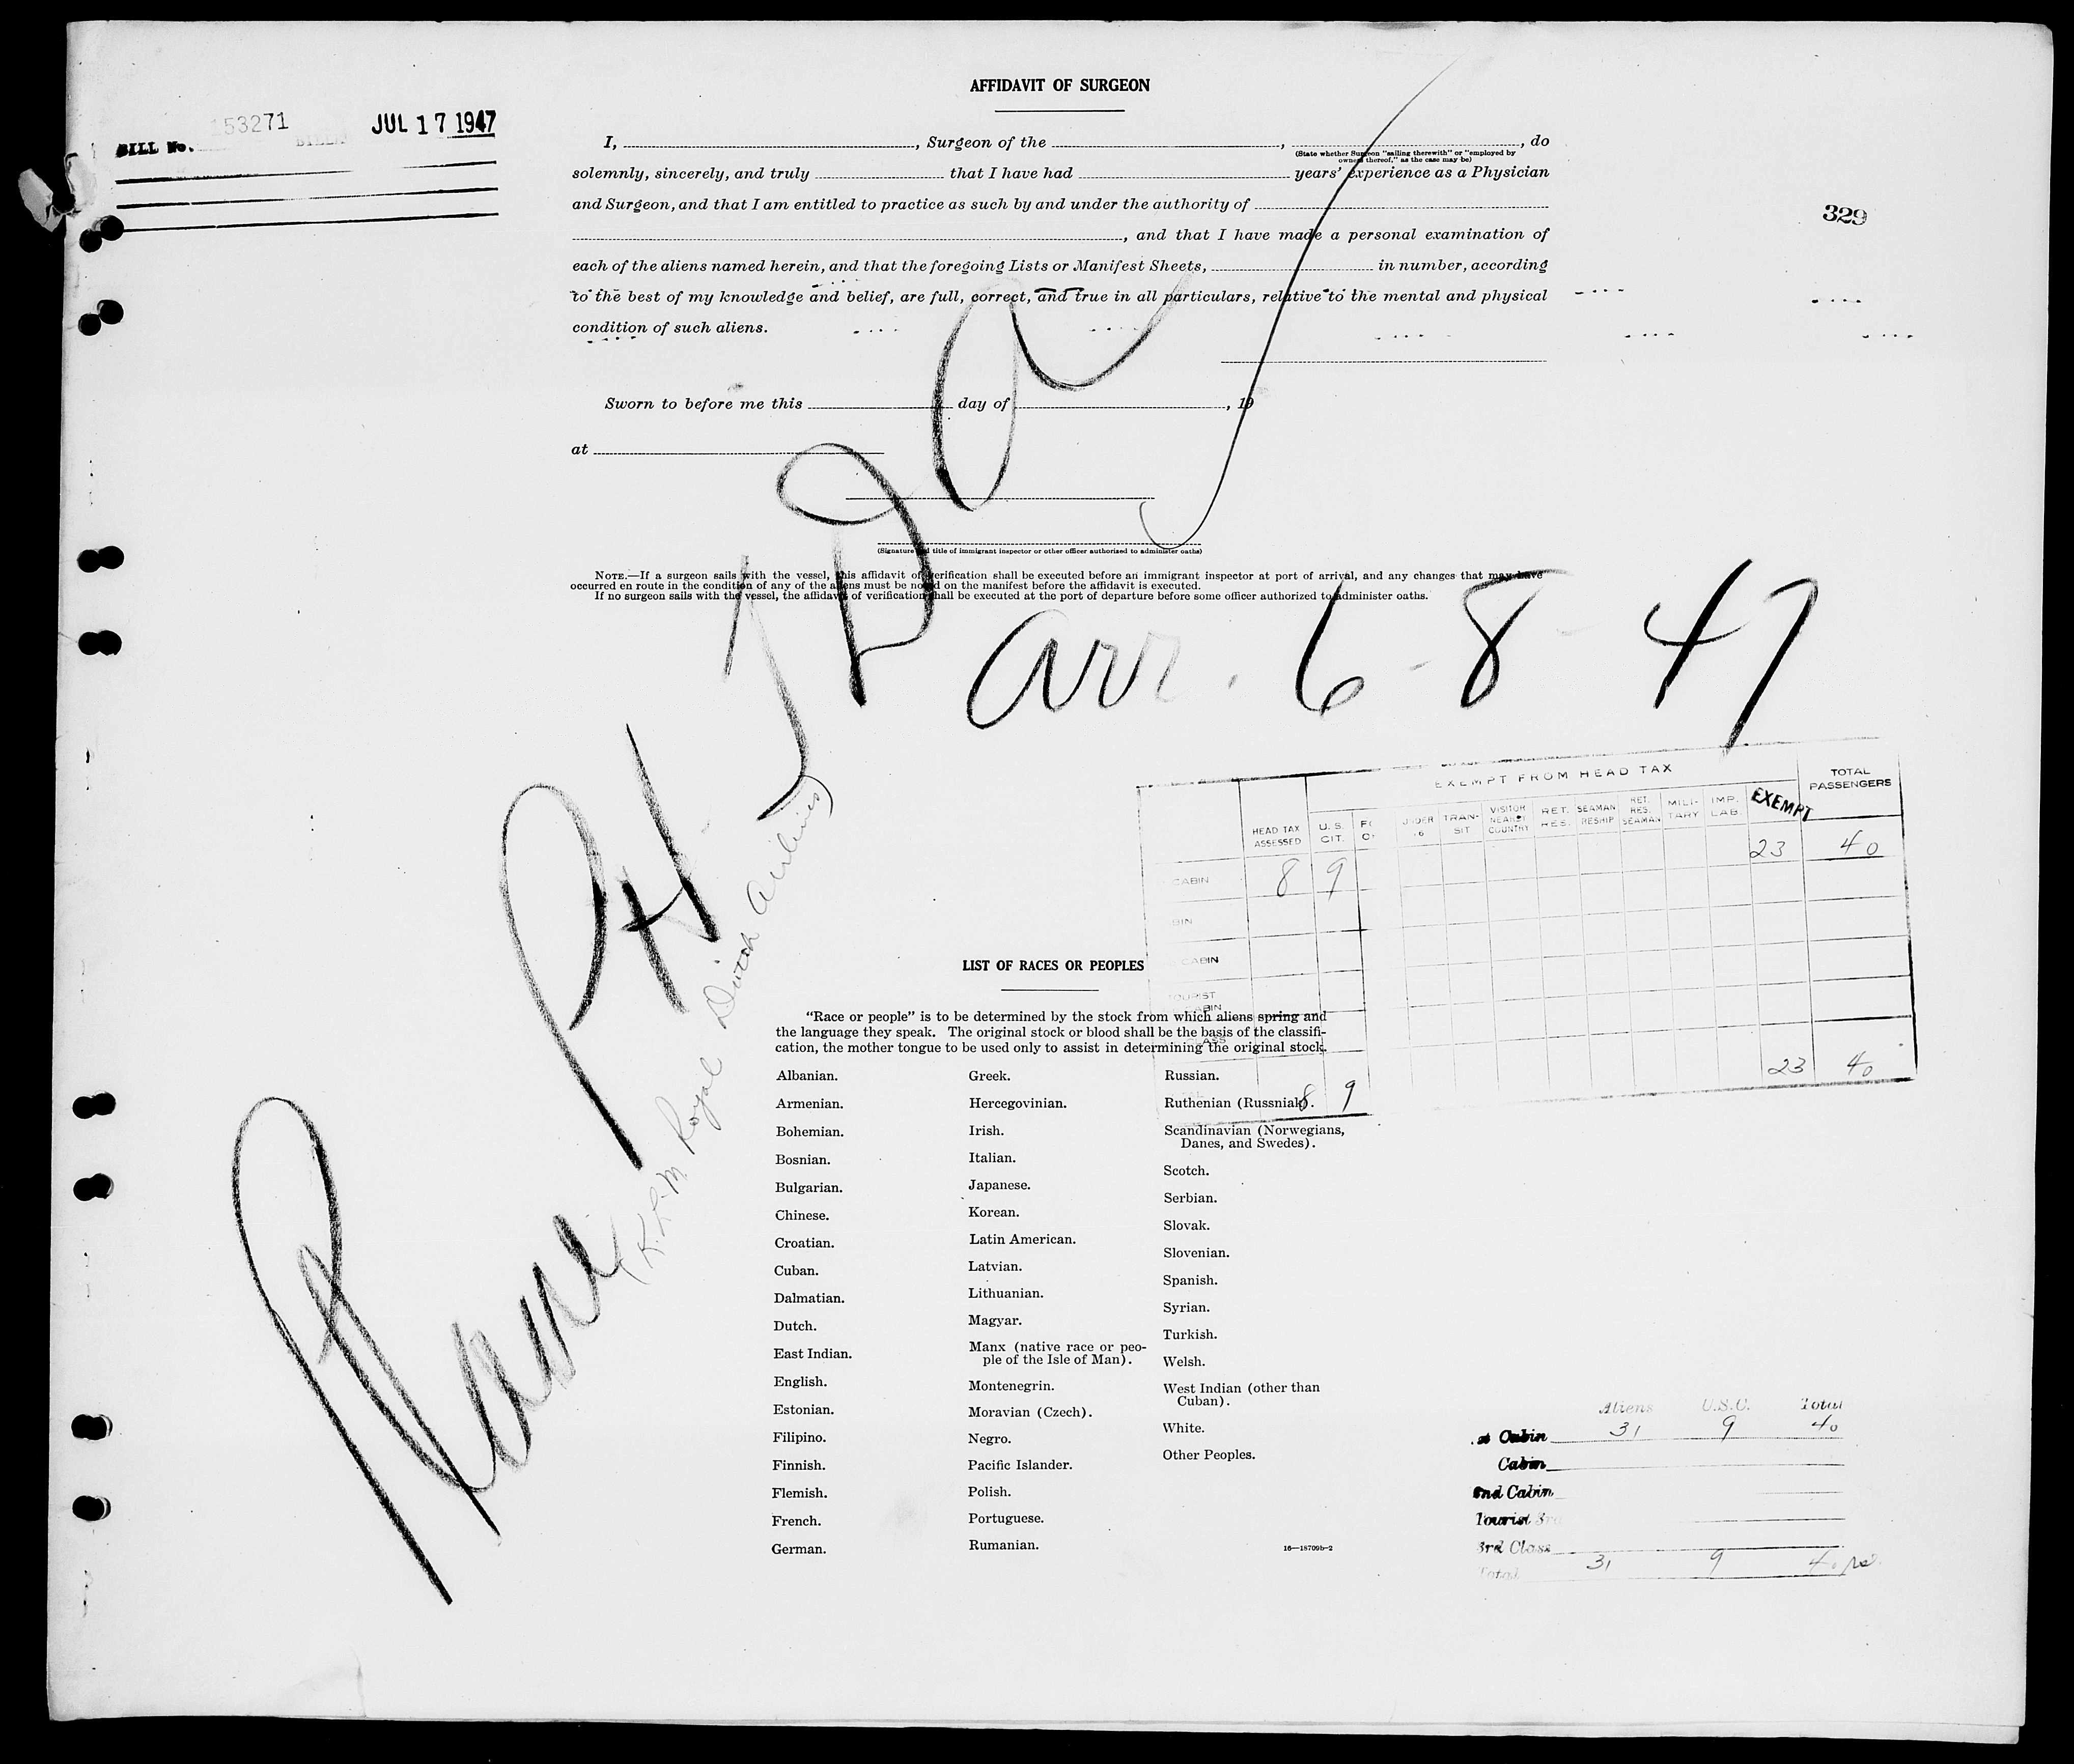 AFFIDAVIT OF SURGEON
BILL No. 153271 JUL 17 1947
I, , Surgeon of the , , do
(State whether Surgeon "sailing therewith" or "employed by
owners thereof," as the case may be)
solemnly, sincerely, and truly that I have had years' experience as a Physician
and Surgeon, and that I am entitled to practice as such by and under the authority of
329
, and that I have made a personal examination of
each of the aliens named herein, and that the foregoing Lists or Manifest Sheets, in number, according
to the best of my knowledge and belief, are full, correct, and true in all particulars, relative to the mental and physical
condition of such aliens.
Sworn to before me this day of , 19
at
(Signature and title of immigrant inspector or other officer authorized to administer oaths)
NOTE.—If a surgeon sails with the vessel, this affidavit of verification shall be executed before an immigrant inspector at port of arrival, and any changes that may have
occurred en route in the condition of any of the aliens must be noted on the manifest before the affidavit is executed.
If no surgeon sails with the vessel, the affidavit of verification shall be executed at the port of departure before some officer authorized to administer oaths.
Plane PH TDA
(K.L.M. Royal Dutch Airlines)
Arr. 6-8-47
EXEMPT FROM HEAD TAX
HEAD TAX ASSESSED
U. S. CIT.
UNDER 16
TRANSIT
VISITOR NEARBY COUNTRY
RET. RES.
SEAMAN RESHIP
RET. RES. SEAMAN
MILITARY
IMP. LAB.
EXEMPT
TOTAL PASSENGERS
CABIN 8 9 23 40
CABIN
TOURIST
CABIN
CLASS
8 9 23 40
LIST OF RACES OR PEOPLES
"Race or people" is to be determined by the stock from which aliens spring and
the language they speak. The original stock or blood shall be the basis of the classifi-
cation, the mother tongue to be used only to assist in determining the original stock.
Albanian.
Armenian.
Bohemian.
Bosnian.
Bulgarian.
Chinese.
Croatian.
Cuban.
Dalmatian.
Dutch.
East Indian.
English.
Estonian.
Filipino.
Finnish.
Flemish.
French.
German.
Greek.
Hercegovinian.
Irish.
Italian.
Japanese.
Korean.
Latin American.
Latvian.
Lithuanian.
Magyar.
Manx (native race or peo-
ple of the Isle of Man).
Montenegrin.
Moravian (Czech).
Negro.
Pacific Islander.
Polish.
Portuguese.
Rumanian.
Russian.
Ruthenian (Russniak).
Scandinavian (Norwegians,
Danes, and Swedes).
Scotch.
Serbian.
Slovak.
Slovenian.
Spanish.
Syrian.
Turkish.
Welsh.
West Indian (other than
Cuban).
White.
Other Peoples.
16—18709b-2
Aliens U.S.C. Total
Cabin 31 9 40
Cabin
2nd Cabin
Tourist 3rd
3rd Class
Total 31 9 40